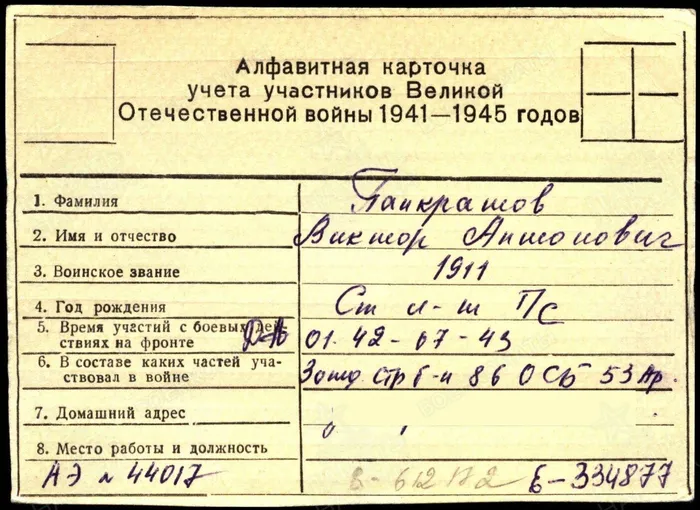 Алфавитная карточка
учета участников Великой
Отечественной войны 1941—1945 годов
1. Фамилия Панкратов
2. Имя и отчество Виктор Антонович
3. Воинское звание 1911
4. Год рождения Ст л-т ПС
5. Время участий с боевых дей-
ствиях на фронте 01.42-07-43
6. В составе каких частей уча-
ствовал в войне стр б-н 86 ОСБ 53 Ар.
7. Домашний адрес
8. Место работы и должность
АЭ № 44017 6-612172 Б-334877